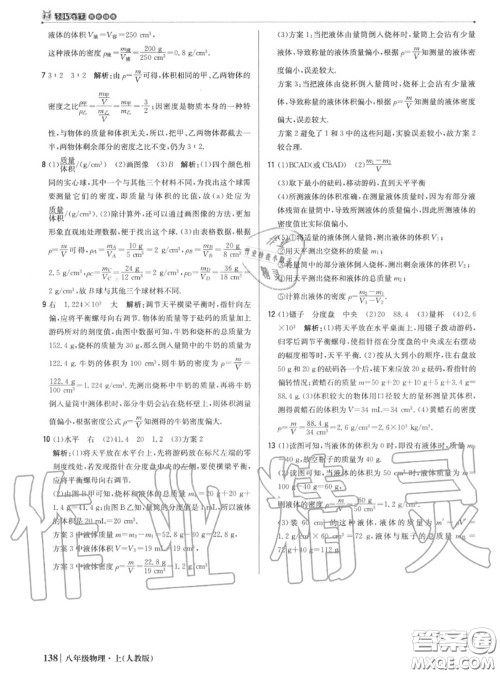 液体的体积V液=V容=250 cm³,
这种液体的密度ρ液=m液/V液=200 g/250 cm³=0.8 g/cm³.
7 3∶2 3∶2 解析:由ρ=m/V可得,体积相同的甲、乙两物体的
密度之比ρ甲/ρ乙=m甲/V/m乙/V=m甲/m乙=3/2;因密度是物质本身的一种特
性,与物体的质量和体积无关,所以,把甲、乙两物体都截去一
半,两物体剩余部分的密度之比仍为3∶2.
8 (1)质量/体积(g/cm³) (2)画图像 (3)B 解析:(1)四个颜色相
同的实心球,其中一个与其他三个材料不同,为找出这个球需
要测量它们的密度,即质量与体积的比值,故(a)处应为
质量/体积(g/cm³).(2)除计算外,还可以通过画图像的方法,更加
形象直观地处理数据,便于找出这个球.(3)由表格数据,根据
ρ=m/V可得,ρA=mA/VA=10 g/5 cm³=2 g/cm³,ρB=mB/VB=20 g/8 cm³=
2.5 g/cm³,ρC=mC/VC=24 g/12 cm³=2 g/cm³,ρD=mD/VD=32 g/16 cm³=2 g/cm³.
9 右 1.224×10³ 大 解析:调节天平横梁平衡时,指针向左
偏,应将平衡螺母向右调节.物体的质量等于砝码的质量加上
游码所对的刻度值,由图中数据可知,牛奶和烧杯的总质量为
152.4 g,烧杯的质量为30 g,那么倒入量筒中的牛奶的质量为
122.4 g,牛奶的体积为100 cm³,则牛奶的密度为ρ=m/V=
122.4 g/100 cm³=1.224 g/cm³.先测出烧杯中牛奶的质量,再将牛奶
倒入量筒中测体积时,部分牛奶会沾在烧杯壁上,则体积测量
值偏小,根据密度公式ρ=m/V知测得的牛奶密度偏大.
10 (1)水平 右 (2)41.4 20 1.2 (3)方案2
解析:(1)将天平放在水平台上,先将游码放在标尺左端的零
刻度线处,若发现指针在分度盘中央的左侧,要使横梁平衡,
应将平衡螺母向右调节.
(2)由图甲可知,烧杯和液体的总质量 m₁=20 g+20 g+
1.4 g=41.4 g;由图B乙知,量筒的分度值是1 mL,所以液体
的体积是20 mL=20 cm³.
方案3中液体质量 m=m₂-m₁=52.8 g-30 g=22.8 g,
方案3中液体体积 V=V₁=19 mL=19 cm³,
方案3中液体密度 ρ=m/V=22.8 g/19 cm³=1.2 g/cm³.
(3)方案1:当把液体由量筒倒入烧杯时,量筒上会沾有少量
液体,导致称量的液体质量偏小,根据ρ=m/V知测量的液体密
度偏小,误差较大.
方案3:当把液体由烧杯倒入量筒时,烧杯上会沾有少量液
体,导致称量的液体体积偏小,根据ρ=m/V知测量的液体密度
偏大,误差较大.
方案2避免了1和3中的这些问题,实验误差较小,故方案2
较合理.
11 (1)BCAD(或CBAD) (2)m₁-m₂/V
(3)取下最小的砝码,移动游码,直到天平平衡
(4)所测液体的体积准确,在测量液体质量时,因为有部分液
体残留在量筒中,导致所测液体的质量值偏小,因此所测的密
度值比实际值偏小.
(5)①将适量的液体倒入量筒,测出液体的体积V₁;
②用天平测出空烧杯的质量;
③将量筒中的部分液体倒入烧杯,测出剩余液体的体积V₂;
④用天平测出烧杯和液体的总质量m₂;
⑤计算出液体的密度
12 (1)镊子 分度盘 中央 (2)20 88.4 (3)量杯 (4)2.6×
10³ 解析:(1)将天平放在水平桌面上,用镊子拨动游码,
归零后调节平衡螺母,使横梁指针指在分度盘的中央或左右摆动
的幅度相等时,天平平衡.(2)按从大到小的顺序,往右盘放
50 g和20 g的砝码各一个后,接下来应放20 g砝码,看指针的
偏转情况;黄蜡石的质量m=50 g+20 g+10 g+5 g+3.4 g=
88.4 g.(3)体积较大的物体用口径较大的量杯测量其体积.
测得黄蜡石的体积为V=34 mL=34 cm³.(4)黄蜡石的密度
ρ=m/V=88.4 g/34 cm³=2.6 g/cm³=2.6×10³ kg/m³.
13 (1)读图可知,当液体的体积为0时,即没有液体时,质量为
40 g,故空瓶子的质量为40 g.
(2)读图可知,当液体的体积为50 cm³时,液体质量为
100 g-40 g=60 g,
则液体的密度ρ=m/V=60 g/50 cm³=1.2 g/cm³.
138 八年级物理·上(人教版)